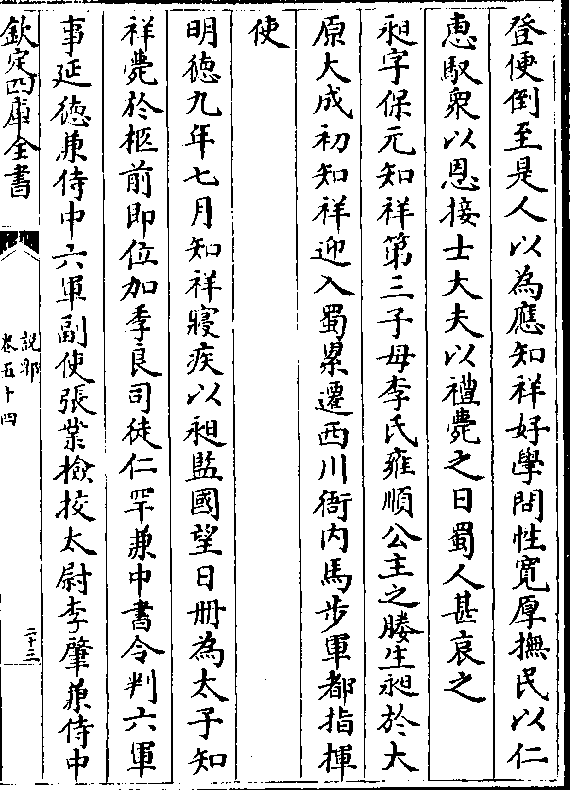 登便倒至是人以為應知祥好學問性寛厚撫民以仁
恵馭衆以恩接士大夫以禮薨之日蜀人甚哀之
昶字保元知祥第三子母李氏雍順公主之媵生昶於大
原大成初知祥迎入蜀累遷西川衙内馬步軍都指揮
使
明徳九年七月知祥寢疾以昶監國望日册為太子知
祥薨於柩前即位加季良司徒仁罕兼中書令判六軍
事延徳兼侍中六軍副使張業檢挍太尉李肇兼侍中
欽定四庫全書
說郛
卷五十四
二十三